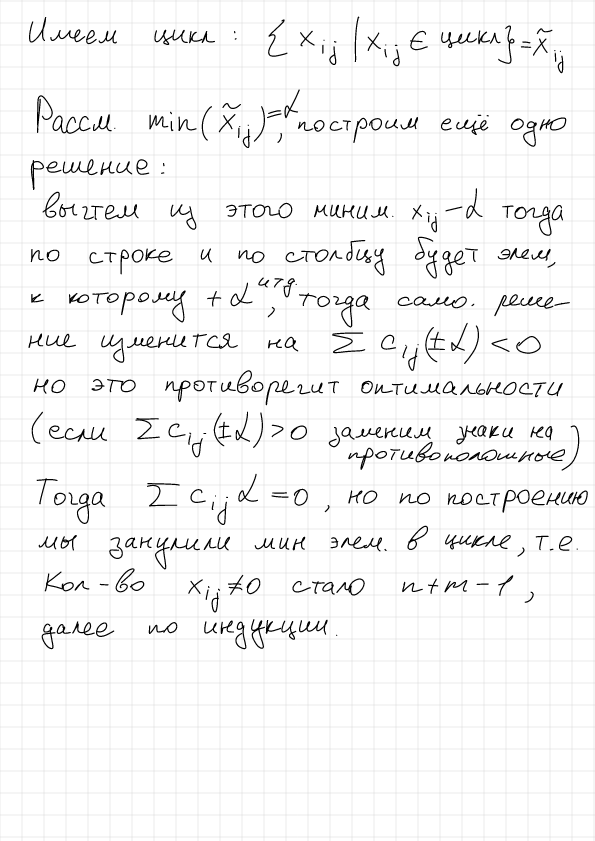 Имеем цикл : { x_ij | x_ij ∈ цикл } = x̃_ij
Рассм. min( x̃_ij ) = α, построим ещё одно
решение :
вычтем из этого миним. x_ij − α тогда
по строке и по столбцу будет элем,
к которому + α и т д., тогда само. реше-
ние изменится на ∑ c_ij (±α) < 0
но это противоречит оптимальности
(если ∑ c_ij (±α) > 0 заменим знаки на
противоположные)
Тогда ∑ c_ij α = 0 , но по построению
мы занулили мин элем. в цикле, т.е.
Кол-во x_ij ≠ 0 стало n + m − 1 ,
далее по индукции.